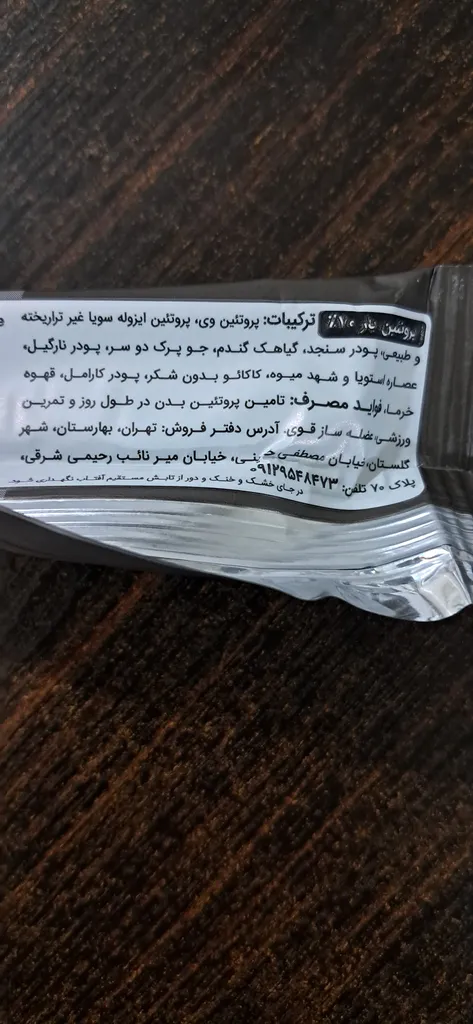 پروتئین بار ۷۰٪ ترکیبات: پروتئین وی، پروتئین ایزوله سویا غیر تراریخته و
و طبیعی، پودر سنجد، گیاهک گندم، جو پرک دو سر، پودر نارگیل،
عصاره استویا و شهد میوه، کاکائو بدون شکر، پودر کارامل، قهوه
خرما، فواید مصرف: تامین پروتئین بدن در طول روز و تمرین
ورزشی عضله ساز قوی. آدرس دفتر فروش: تهران، بهارستان، شهر
گلستان، خیابان مصطفی خمینی، خیابان میر نائب رحیمی شرقی،
پلاک ۷۰ تلفن: ۰۹۱۲۹۵۴۸۴۷۳
در جای خشک و خنک و دور از تابش مستقیم آفتاب نگهداری شود